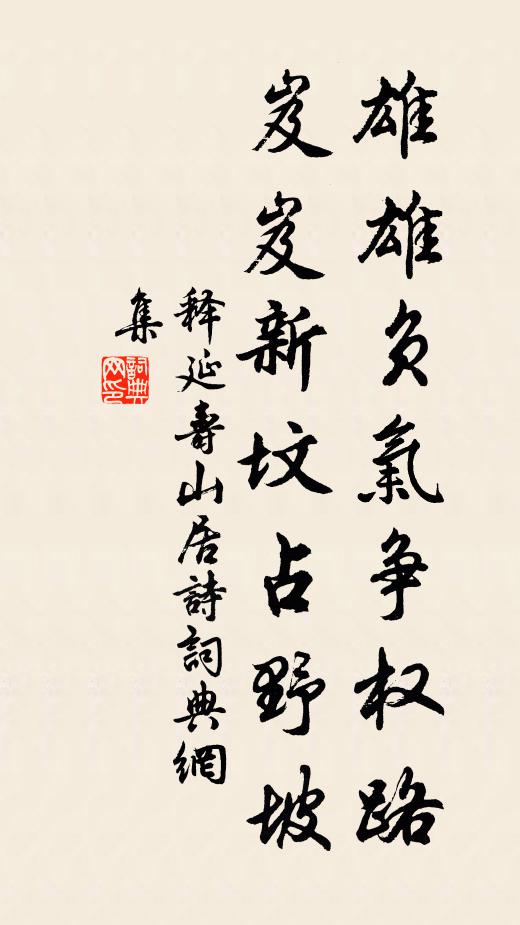 雄雄负氣争权路
岌岌新坟占野坡
释延壽山居詩詞典網
集
詞典
网印